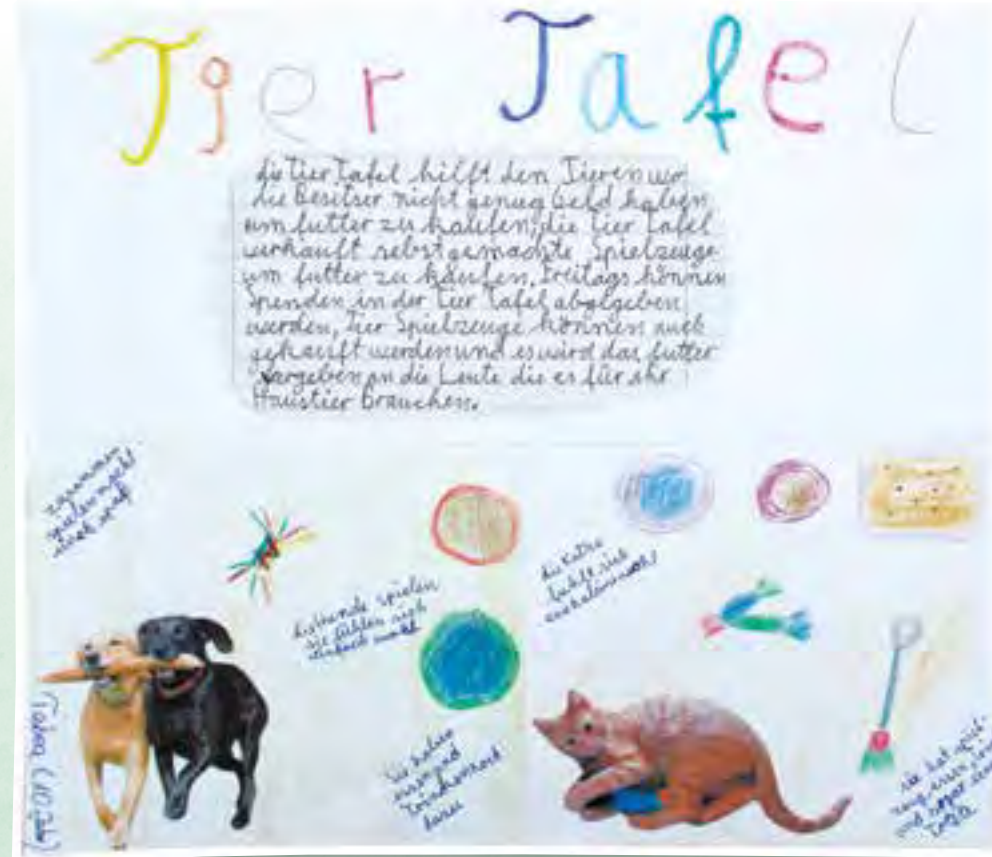 Tier Tafel
die Tier Tafel hilft den Tieren wo
die Besitser nicht genug Geld haben
um futter zu kaufen, die Tier Tafel
verkauft selbstgemachte Spielzeuge
um futter zu kaufen. Freitags können
Spenden in der Tier Tafel abgegeben
werden, Tier Spielzeuge können auch
gekauft werden und es wird das futter
vergeben an die Leute die es für ihr
Haustier brauchen.
zusammen
spielen macht
die Katze
fühlt sich
die Hunde spielen
sie fühlen sich
einfach wohl
Sie haben
essen und
sie hat spiel-
zeug essen
und sogar eine
(10 Jahre)